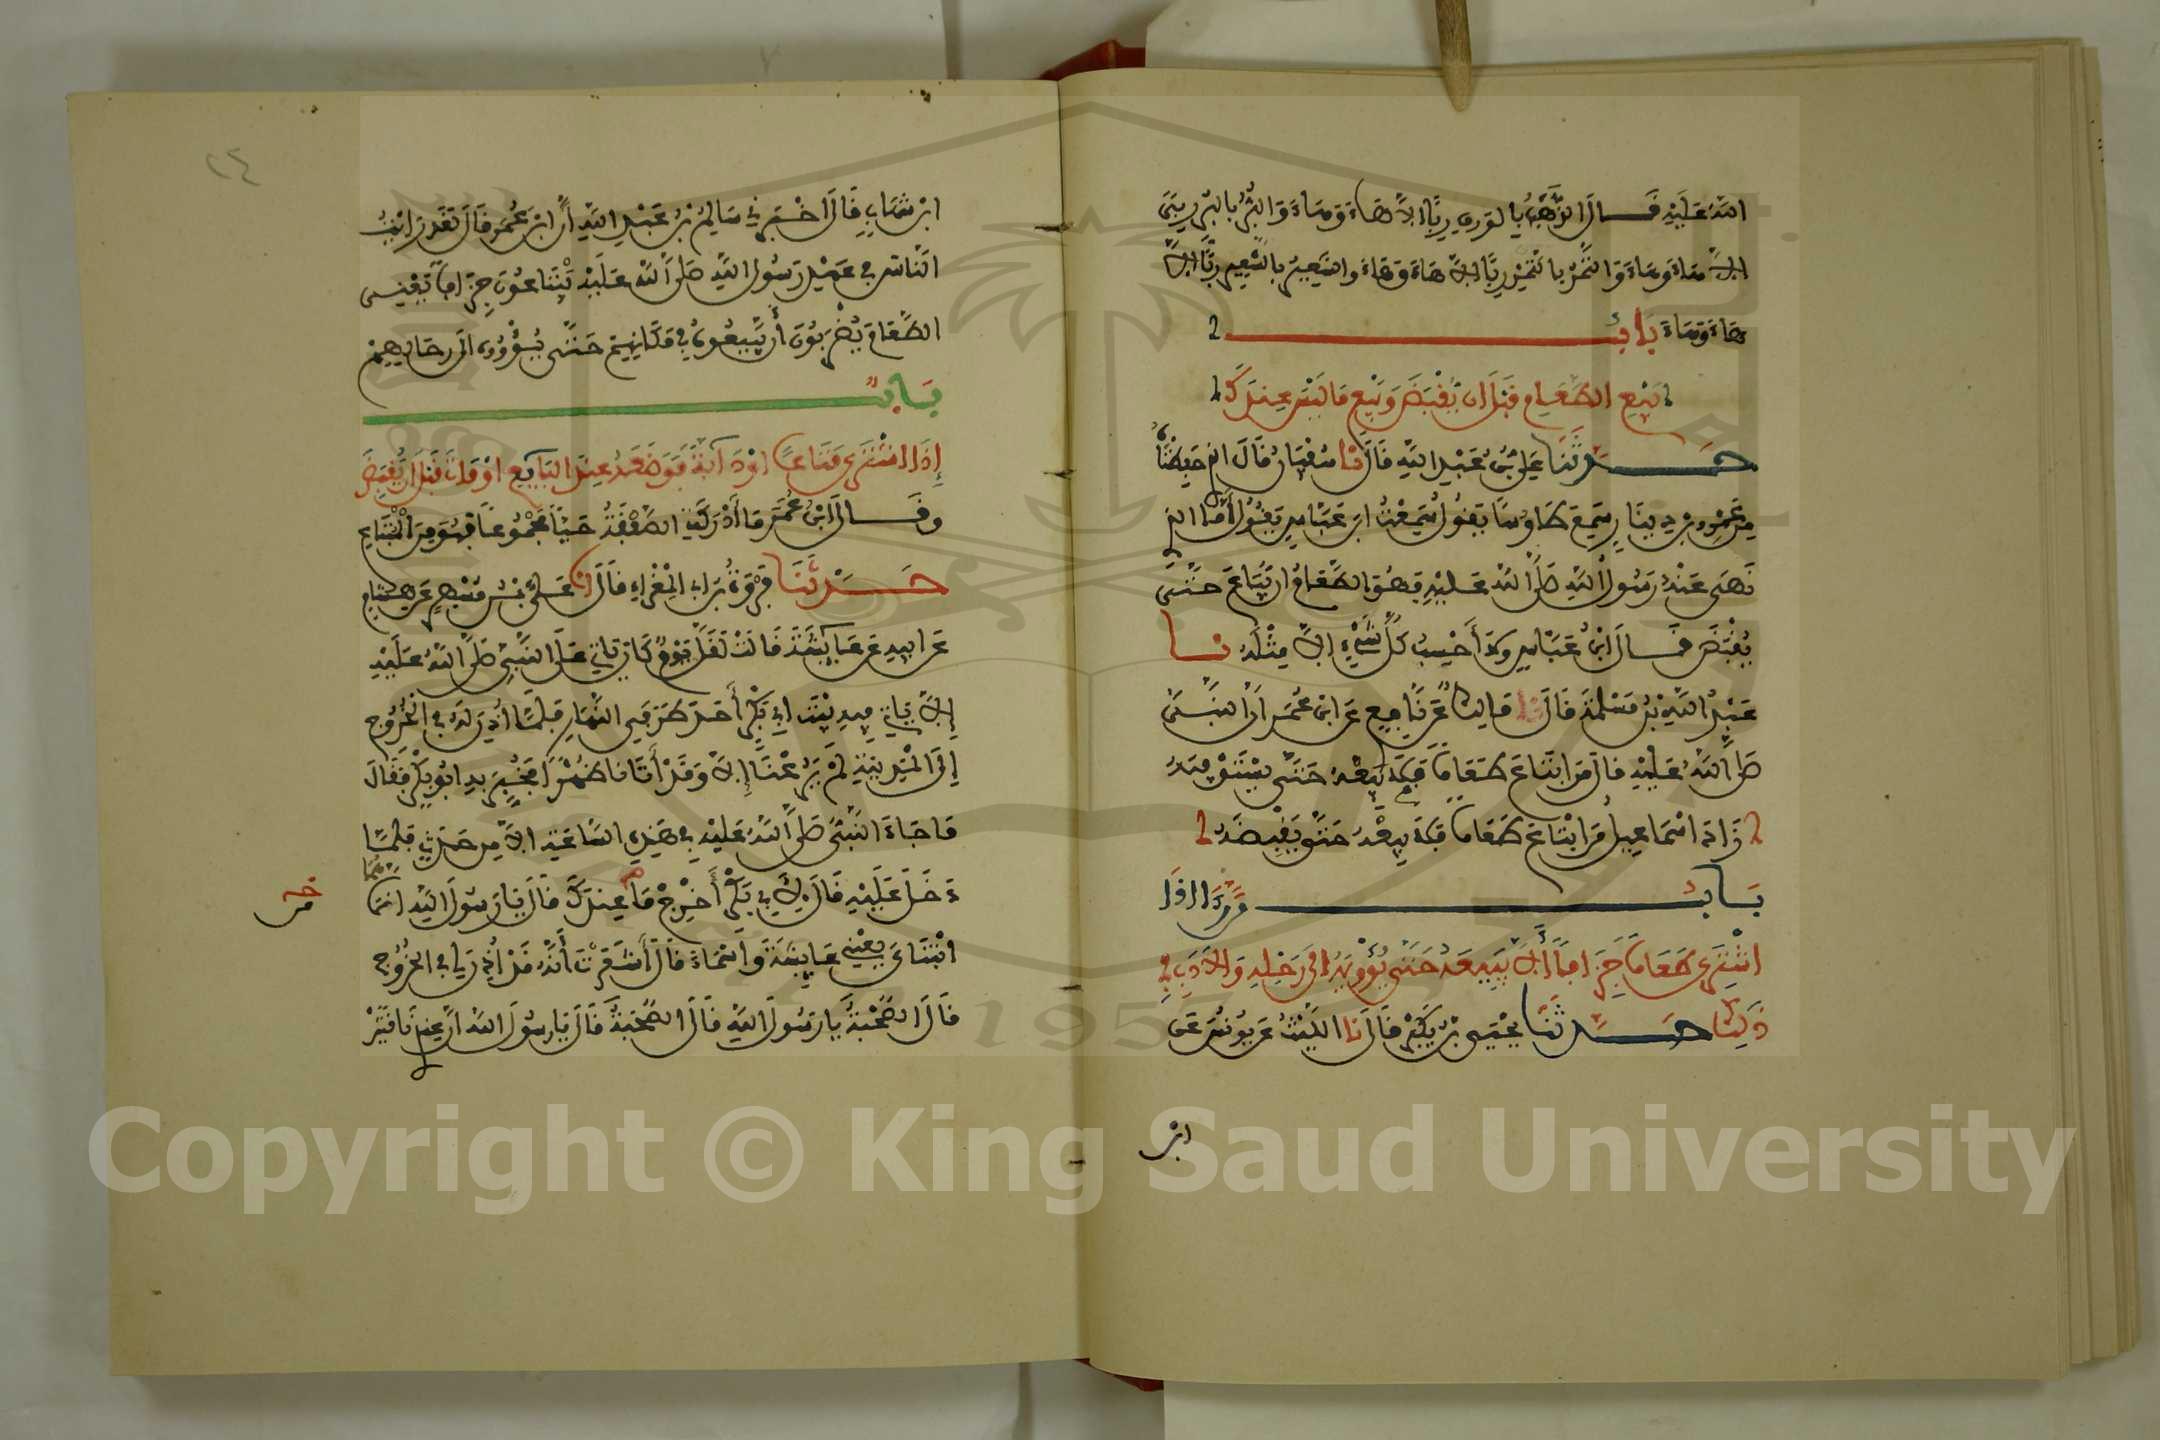 اللَّهُ عَلَيْهِ قَالَ الذَّهَبُ بِالْوَرِقِ رِبًا إِلاَّ هَاءَ وَهَاءَ وَالْبُرُّ بِالْبُرِّ رِبًى
إِلاَّ هَاءَ وَهَاءَ وَالتَّمْرُ بِالتَّمْرِ رِبًا إِلاَّ هَاءَ وَهَاءَ وَالشَّعِيرُ بِالشَّعِيرِ رِبًّا إِلاَّ
هَاءَ وَهَاءَ بَابُ
بَيْعِ الطَّعَامِ قَبْلَ أَن يُقْبَضَ وَبَيْعِ مَا لَيْسَ عِندَكَ
حَدَّثَنَا عَلِيُّ بْنُ عَبْدِ اللَّهِ قَالَ نا سُفْيَانُ قَالَ الذِي حَفِظْنَاهُ
مِن عَمْرِو بْنِ دِينَارٍ سَمِعَ طَاوُسًا يَقُولُ سَمِعْتُ ابْنَ عَبَّاسٍ يَقُولُ أَمَّا الذِي
نَهَى عَنْهُ رَسُولُ اللَّهِ صَلَّى اللَّهُ عَلَيْهِ فَهُوَ الطَّعَامُ أَن يُّبَاعَ حَتَّى
يُقْبَضَ قَالَ ابْنُ عَبَّاسٍ وَلاَ أَحْسِبُ كُلَّ شَيْءٍ إِلاَّ مِثْلَهُ نا
عَبْدُ اللَّهِ بْنُ مَسْلَمَةَ قَالَ نا مَالِكٌ عَن نَّافِعٍ عَنِ ابْنِ عُمَرَ أَنَّ النَّبِيَّ
صَلَّى اللَّهُ عَلَيْهِ قَالَ مَنِ ابْتَاعَ طَعَامًا فَلاَ يَبِعْهُ حَتَّى يَسْتَوْفِيَهُ
زَادَ اسْمَاعِيلُ مَنِ ابْتَاعَ طَعَامًا فَلاَ يَبِعْهُ حَتَّى يَقْبِضَهُ
بَابُ مَن رَّأَى إِذَا
اشْتَرَى طَعَامًا جِزَافًا أَن لاَّ يَبِيعَهُ حَتَّى يُؤْوِيَهُ إِلَى رَحْلِهِ وَالأَدَبِ فِي
ذَلِكَ حَدَّثَنَا يَحْيَى بْنُ بُكَيْرٍ قَالَ نَا اللَّيْثُ عَن يُونُسَ عَنِ
ابْنِ
٢٤
ابْنِ شِهَابٍ قَالَ أَخْبَرَنِي سَالِمُ بْنُ عَبْدِ اللَّهِ أَنَّ ابْنَ عُمَرَ قَالَ لَقَدْ رَأَيْتُ
النَّاسَ فِي عَهْدِ رَسُولِ اللَّهِ صَلَّى اللَّهُ عَلَيْهِ يَبْتَاعُونَ جِزَافًا يَعْنِي
الطَّعَامَ يُضْرَبُونَ أَن يَّبِيعُوهُ فِي مَكَانِهِمْ حَتَّى يُؤْوُوهُ إِلَى رِحَالِهِمْ
بَابٌ
إِذَا اشْتَرَى مَتَاعًا أَوْ دَابَّةً فَوَضَعَهُ عِنْدَ الْبَايِعِ أَوْ مَاتَ قَبْلَ أَن يُّقْبَضَ
وَقَالَ ابْنُ عُمَرَ مَا أَدْرَكَتِ الصَّفْقَةُ حَيًّا مَجْمُوعًا فَهُوَ مِنَ الْمُبْتَاعِ
حَدَّثَنَا فَرْوَةُ بْنُ أَبِي الْمَغْرَاءِ قَالَ انا عَلِيُّ بْنُ مُسْهِرٍ عَنْ هِشَامٍ
عَنْ أَبِيهِ عَنْ عَايِشَةَ قَالَتْ لَقَلَّ يَوْمٌ كَانَ يَاتِي عَلَى النَّبِيِّ صَلَّى اللَّهُ عَلَيْهِ
إِلاَّ يَاتِي فِيهِ بَيْتَ أَبِي بَكْرٍ أَحَدَ طَرَفَيِ النَّهَارِ فَلَمَّا أُذِنَ لَهُ فِي الْخُرُوجِ
إِلَى الْمَدِينَةِ لَمْ يَرُعْنَا إِلاَّ وَقَدْ أَتَانَا ظُهْرًا فَخُبِّرَ بِهِ أَبُو بَكْرٍ فَقَالَ
مَا جَاءَ النَّبِيُّ صَلَّى اللَّهُ عَلَيْهِ فِي هَذِهِ السَّاعَةِ إِلاَّ مِنْ حَدَثٍ فَلَمَّا
دَخَلَ عَلَيْهِ قَالَ لِأَبِي بَكْرٍ أَخْرِجْ مَا عِنْدَكَ قَالَ يَا رَسُولَ اللَّهِ إِنَّمَا هُمَا
ابْنَتَايَ يَعْنِي عَايِشَةَ وَأَسْمَاءَ قَالَ أَشَعَرْتَ أَنَّهُ قَدْ أُذِنَ لِي فِي الْخُرُوجِ
قَالَ الصُّحْبَةَ يَا رَسُولَ اللَّهِ قَالَ الصُّحْبَةَ قَالَ يَا رَسُولَ اللَّهِ إِنَّ عِندِي نَاقَتَيْنِ
Copyright © King Saud University
1957